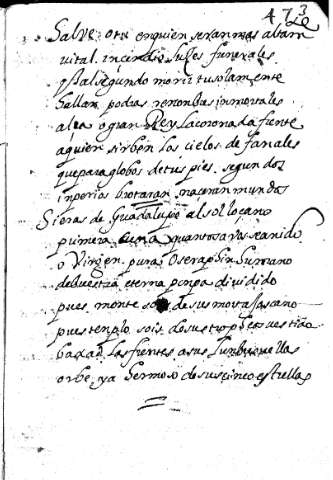 473
Salve otra en quien seran mas
vital incendio luces funerales
al segundo morir tu solamente
hallar podras renombres inmortales
alça o gran Rey la coronada frente
a quien sirben los cielos de fanales
que para globos de tus pies segundos
inperios brotaran naceran mundos
Sierras de Guadalupe al sol loçano
primera cuna quantos
o Virgen pura o serafin humano
de vuestra eterna ponpa dividido
pues monte sois de sus
pues tenplo sois de su
baxad las frentes a sus
orbe ya hermoso de sus cinco estrellas